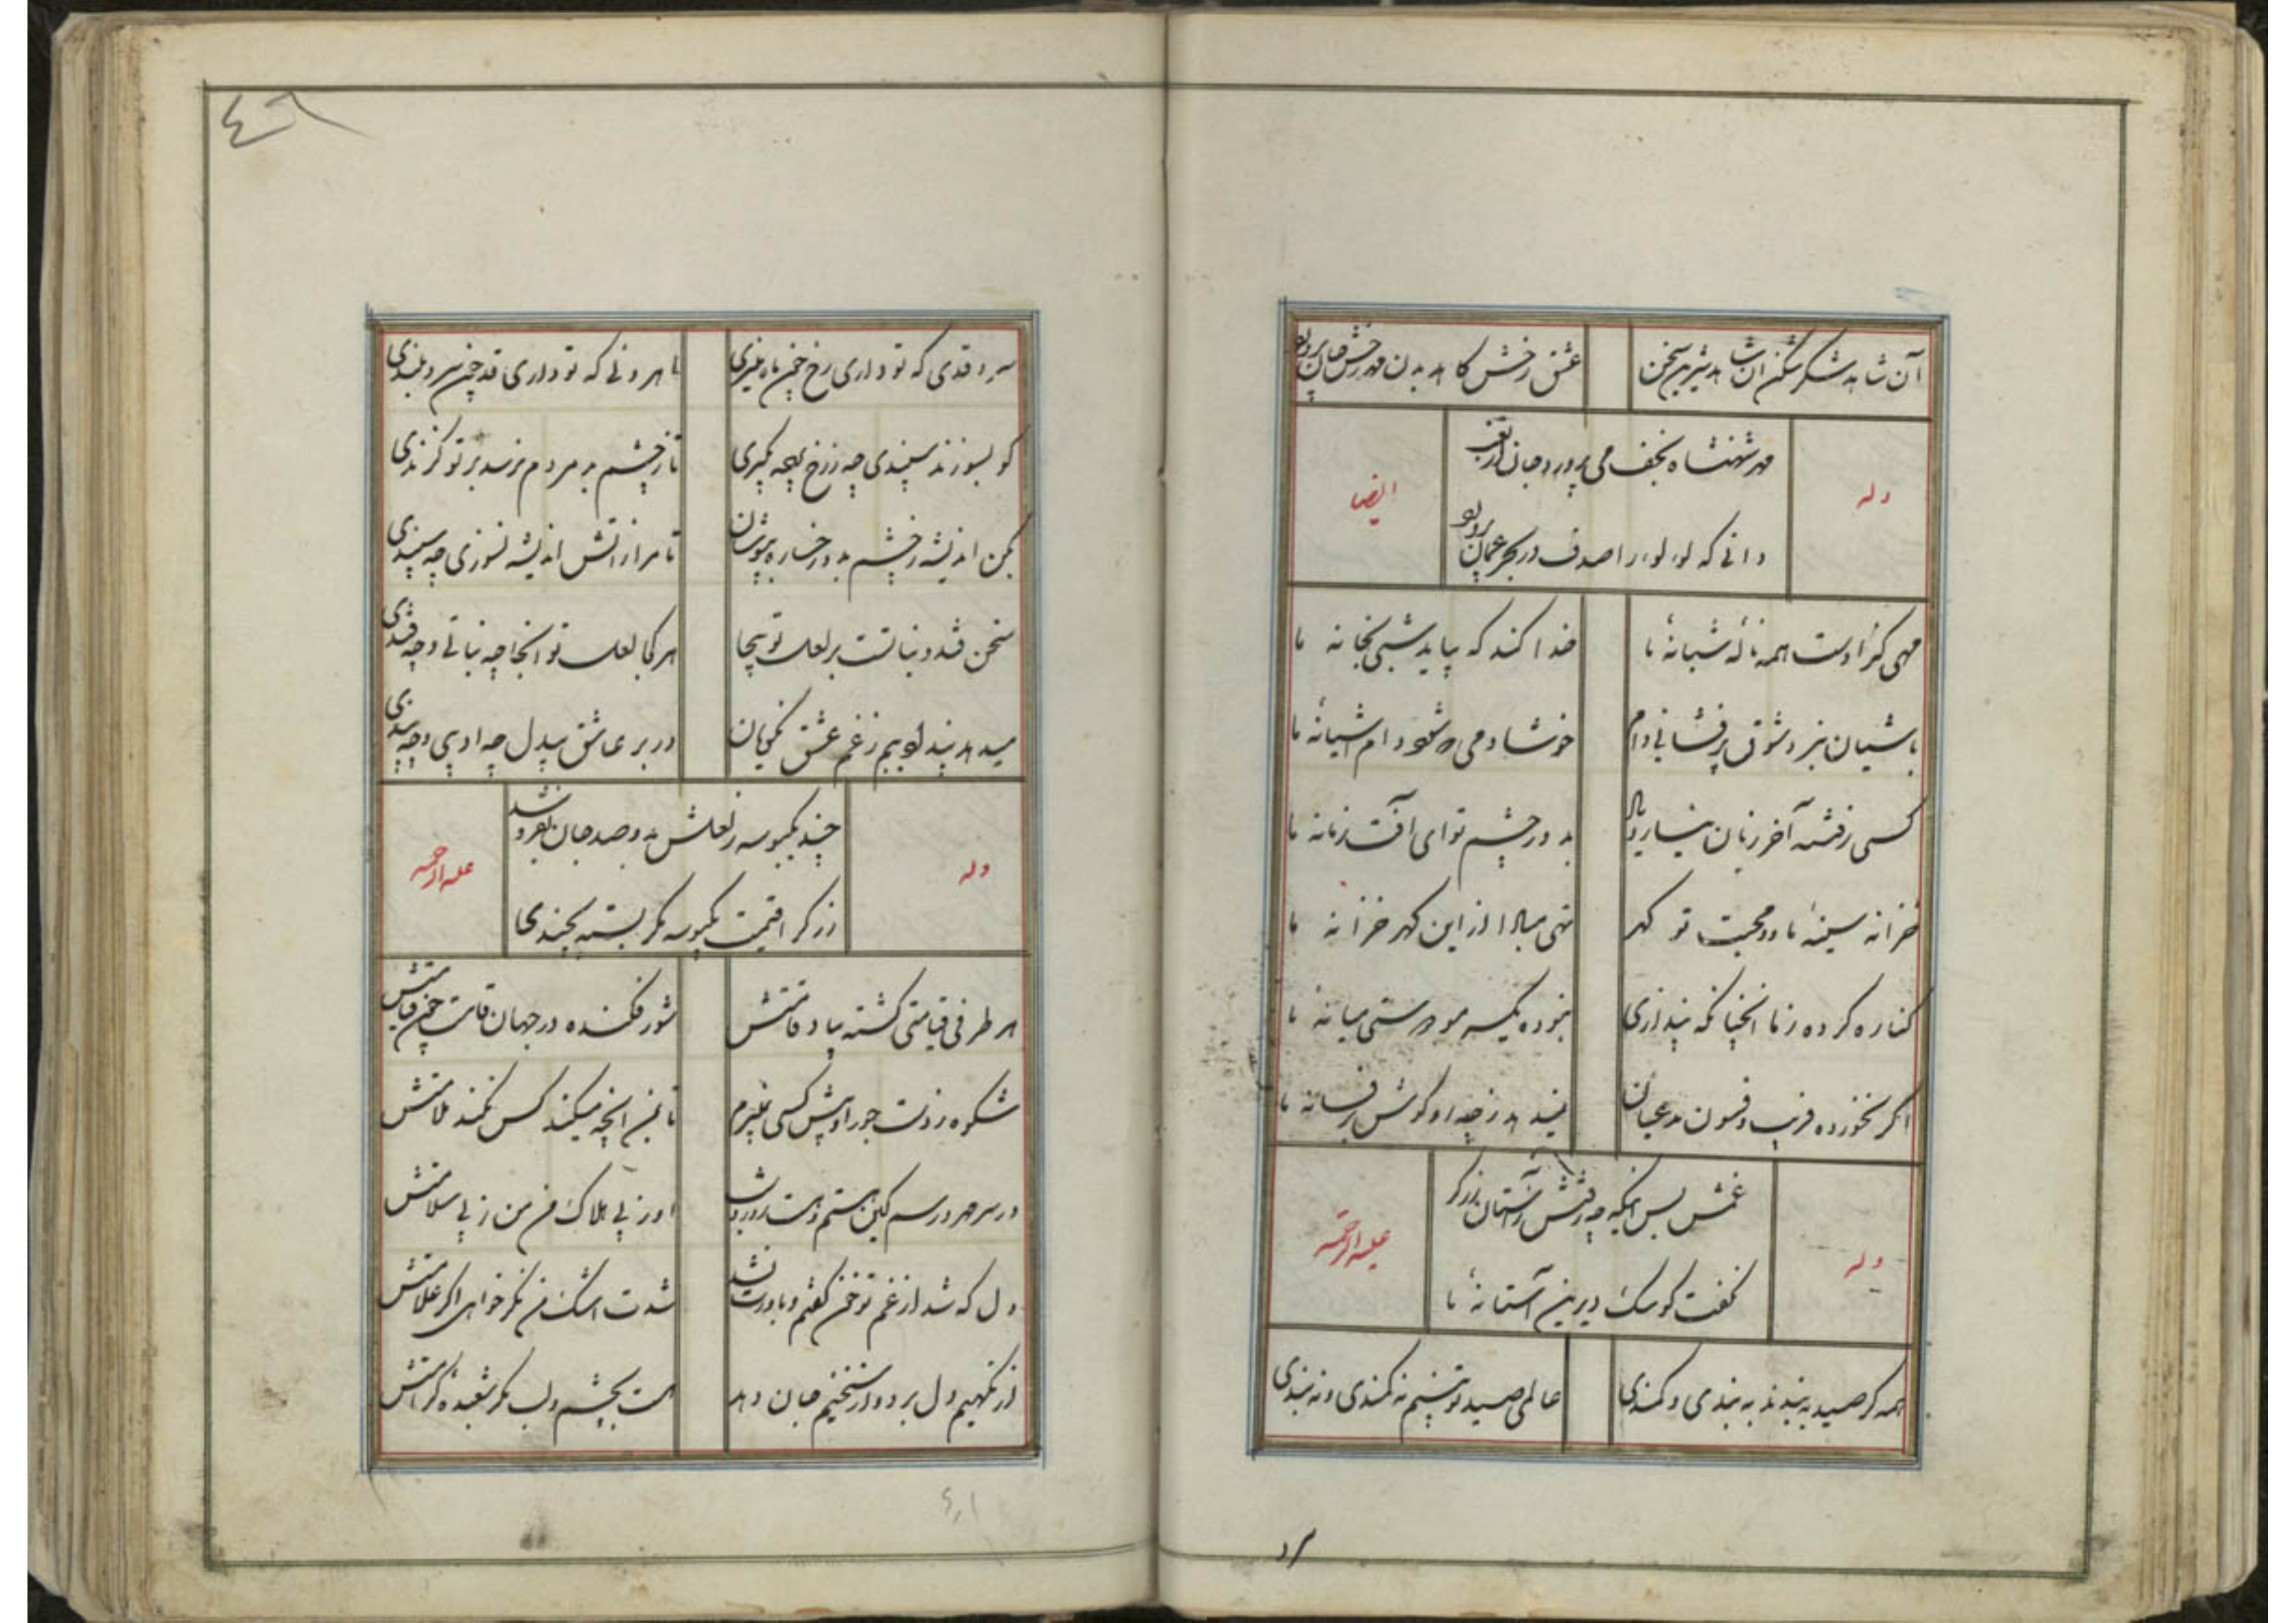 آن شاهد شکر شکن ان شاهد شیرین سخن
عشق رخش کاهد بدن مهر رخش جان پرورد
وله
مهر شهنشاه نجف می پرورد جان از شعف
ایضا
دانی که لولو را صدف در بحر عمان پرورد
مهی کز اوست همه نالهٔ شبانهٔ ما
خدا کند که بیاید شبی بخانه ما
باشیان نبرد شوق پرفشانی دام
خوشا دمی که شود دام اشیانهٔ ما
کسی ز فتنه آخر زمان نیارد یاد
بدور چشم تو ای افت زمانه ما
خزانه سینهٔ ما و محبت تو گهر
تهی مباد از این گهر خزانه ما
کناره کرده ز ما انچنانکه پنداری
نبوده یکسر مو دوستی میانهٔ ما
اگر نخورده فریب و فسون مدعیان
نمیدهد ز چه او گوش بر فسانه ما
وله
غمش بس اینکه چه رفتش ز آستان زرگر
علیه الرحمه
نگفت کو سک دیرین آستانهٔ ما
همه کر صید به بندند به بندی و کمندی
عالمی صید تو بینم نه کمندی و نه بندی
٤٦
سرو قدی که تو داری رخ چون ماه منیری
ماهروئی که تو داری قد چون سرو بلندی
کو بسوزند سپندی چو ز رخ پرده بگیری
تا ز چشم بد مردم نرسد بر تو گزندی
بکن اندیشه ز چشم بد و رخساره بپوشان
تا مرا ز اتش اندیشه نسوزی چه سپندی
سخن قند و نباتست بر لعل تو بیجا
هر کجا لعل تو انجا چه نباتی و چه قندی
میدهد پند ادیبم ز غم عشق نکویان
در بر عاشق بیدل چه ادیبی و چه پندی
وله
چند یکبوسه ز لعلش بدو صد جان بفروشد
علیه الرحمه
زرگرا قیمت یکبوسه مگر بسته بچندی
هر طرفی قیامتی گشته بپا ز قامتش
شور فکنده در جهان قامت چون قیامتش
شکوه ز دست جور او پیش کسی نمیبرم
تا بمن انچه میکند کس نکند ملامتش
او ز پی هلاک من من ز پی سلامتش
دل که شد از غم تو خون گفتم و باورت نشد
شدت اشک من نگر خواهی اگر علامتش
از نگهیم دل برد و ز سخنیم جان دهد
هست بچشم و لب مگر شعبده و کرامتش